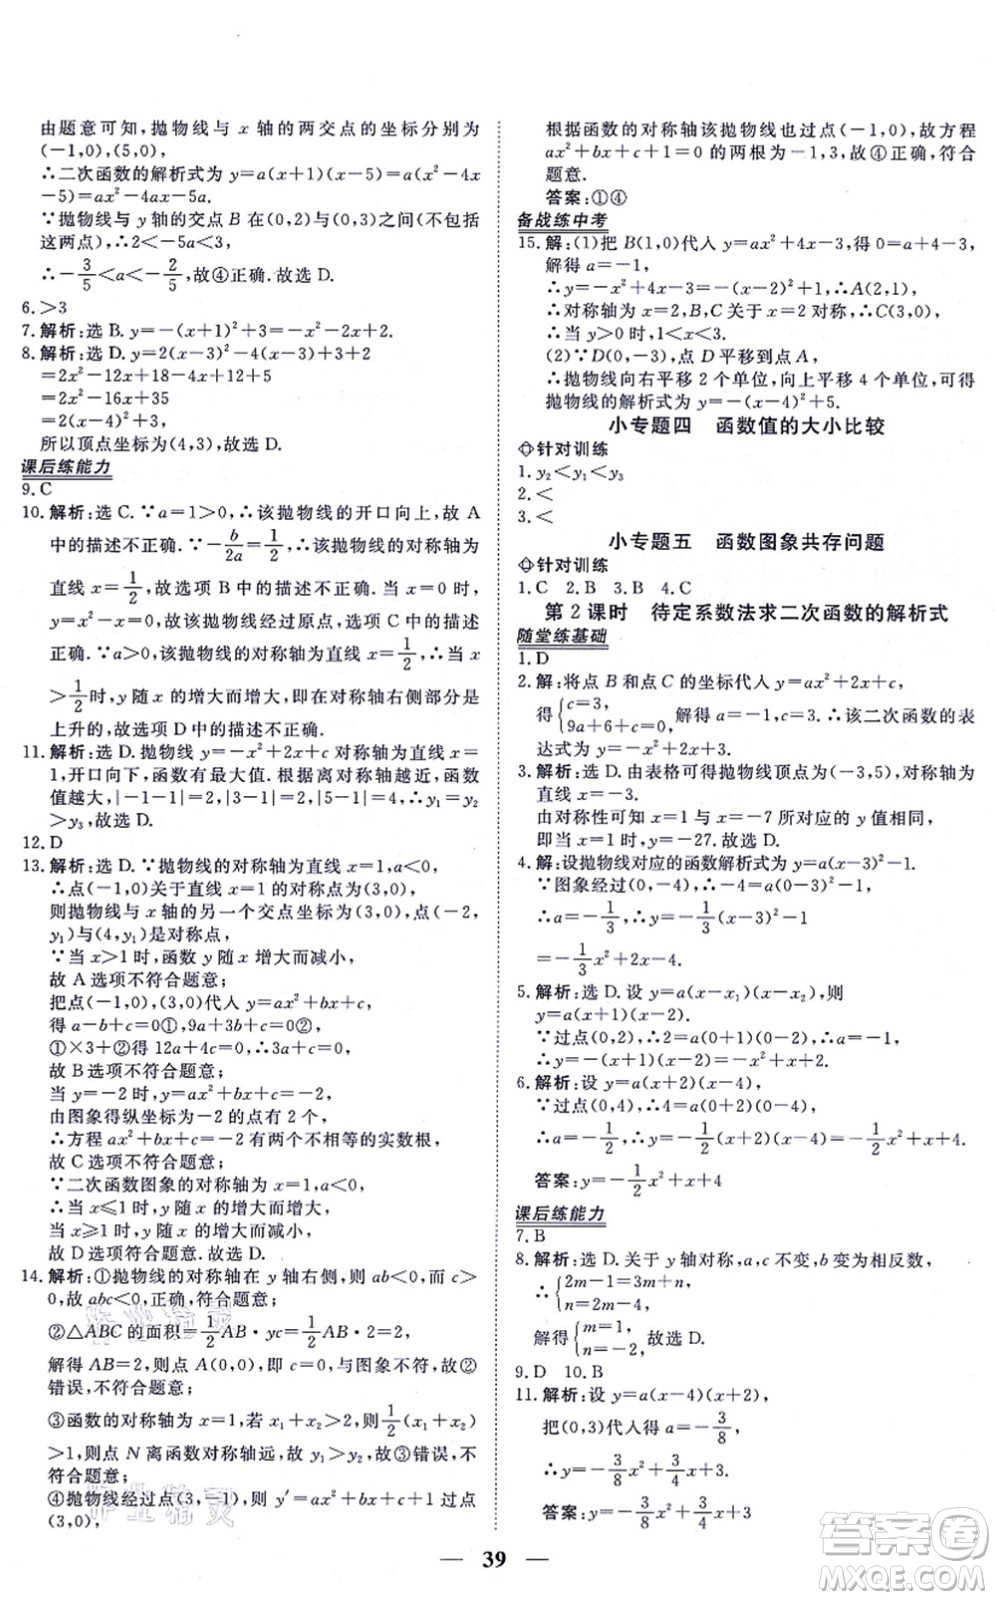 由题意可知,抛物线与 x 轴的两交点的坐标分别为
(-1,0),(5,0),
∴二次函数的解析式为 y=a(x+1)(x-5)=a(x²-4x
-5)=ax²-4ax-5a.
∵抛物线与 y 轴的交点 B 在(0,2)与(0,3)之间(不包括
这两点),∴2<-5a<3,
∴-3/5<a<-2/5,故④正确.故选 D.
6.>3
7.解析:选 B. y=-(x+1)²+3=-x²-2x+2.
8.解析:选 D. y=2(x-3)²-4(x-3)+3+2
=2x²-12x+18-4x+12+5
=2x²-16x+35
=2(x-4)²+3,
所以顶点坐标为(4,3),故选 D.
课后练能力
9.C
10.解析:选 C.∵a=1>0,∴该抛物线的开口向上,故 A
中的描述不正确.∵-b/2a=1/2,∴该抛物线的对称轴为
直线 x=1/2,故选项 B 中的描述不正确.当 x=0 时,
y=0,故该抛物线经过坐标原点,故选项 C 中的描述
正确.∵a>0,该抛物线的对称轴为直线 x=1/2,∴当 x
>1/2时,y 随 x 的增大而增大,即在对称轴右侧部分是
上升的,故选项 D 中的描述不正确.
11.解析:选 D.抛物线 y=-x²+2x+c 对称轴为直线 x=
1,开口向下,函数有最大值.根据离对称轴越近,函数
值越大,|-1-1|=2,|3-1|=2,|5-1|=4,∴y₁=y₂
>y₃,故选 D.
12.D
13.解析:选 D.∵抛物线的对称轴为直线 x=1,a<0,
∴点(-1,0)关于直线 x=1 的对称点为(3,0),
则抛物线与 x 轴的另一个交点坐标为(3,0),点(-2,
y₁)与(4,y₁)是对称点,
∵当 x>1 时,函数 y 随 x 增大而减小,
故 A 选项不符合题意;
把点(-1,0),(3,0)代入 y=ax²+bx+c
得 a-b+c=0①,9a+3b+c=0②,
①×3+②得 12a+4c=0,∴3a+c=0,
故 B 选项不符合题意;
当 y=-2 时,y=ax²+bx+c=-2,
由图象得纵坐标为-2 的点有 2 个,
∴方程 ax²+bx+c=-2 有两个不相等的实数根,
故 C 选项不符合题意;
∵二次函数图象的对称轴为 x=1,a<0,
∴当 x≤1 时,y 随 x 的增大而增大,
当 x≥1 时,y 随 x 的增大而减小,
故 D 选项符合题意.故选 D.
14.解析:①抛物线的对称轴在 y 轴右侧,则 ab<0,而 c>
0,故 abc<0,正确,符合题意;
②△ABC 的面积=1/2 AB·yc=1/2×AB×3=3,
解得 AB=2,则点 A(0,0),即 c=0,与图象不符,故②
错误,不符合题意;
③函数的对称轴为 x=1,若 x₁+x₂>2,则1/2(x₁+x₂)
>1,则点 N 离函数对称轴远,故 y₁>y₂,故③错误,不
符合题意;
④抛物线经过点(3,-1),则 y'=ax²+bx+c+1 过点
(3,0),
根据函数的对称轴该抛物线也过点(-1,0),故方程
ax²+bx+c+1=0 的两根为-1,3,故④正确,符合
题意.
答案:①④
备战练中考
15.解:(1)把 B(1,0)代入 y=ax²+4x-3,得 0=a+4-3,
解得 a=-1,
∴y=-x²+4x-3=-(x-2)²+1,∴A(2,1),
∵对称轴为 x=2,B,C 关于 x=2 对称,∴C(3,0),
∴当 y>0 时,1<x<3.
(2)∵D(0,-3),点 D 平移到点 A,
∴抛物线向右平移 2 个单位,向上平移 4 个单位,可得
抛物线的解析式为 y=-(x-4)²+5.
小专题四 函数值的大小比较
针对训练
1.y₂<y₁<y₃
2.<
3.<
小专题五 函数图象共存问题
针对训练
1.C 2.B 3.B 4.C
第 2 课时 待定系数法求二次函数的解析式
随堂练基础
1.D
2.解:将点 B 和点 C 的坐标代入 y=ax²+2x+c,
得{c=3, 9a+6+c=0, 解得 a=-1,c=3.∴该二次函数的表
达式为 y=-x²+2x+3.
3.解析:选 D.由表格可得抛物线顶点为(-3,5),对称轴为
直线 x=-3.
由对称性可知 x=1 与 x=-7 时的函数值相同,
即当 x=1 时,y=-27.故选 D.
4.解:设抛物线对应的函数解析式为 y=a(x-3)²-1.
∵图象经过点(0,-4),∴-4=a(0-3)²-1.
∴a=-1/3,∴y=-1/3(x-3)²-1
=-1/3x²+2x-4.
5.解析:选 D.设 y=a(x-x₁)(x-x₂),则
y=a(x+1)(x-2).
∵过点(0,2),∴2=a(0+1)(0-2).∴a=-1.
∴y=-(x+1)(x-2)=-x²+x+2.
6.解析:设 y=a(x+2)(x-4),
∵过点(0,4),∴4=a(0+2)(0-4),
∴a=-1/2,∴y=-1/2(x+2)(x-4)=-1/2x²+x+4.
答案:y=-1/2x²+x+4
课后练能力
7.B
8.解析:选 D.关于 y 轴对称,a,c 不变,b 变为相反数,
∴{2m-1=3m+n, n=2m-4,
解得{m=1, n=-2,故选 D.
9.D 10.B
11.解析:设 y=a(x-4)(x+2),
把(0,3)代入得 a=-3/8,
∴y=-3/8x²+3/4x+3.
答案:y=-3/8x²+3/4x+3
39
作业精灵
作业精灵
答案圈
MXQE.COM